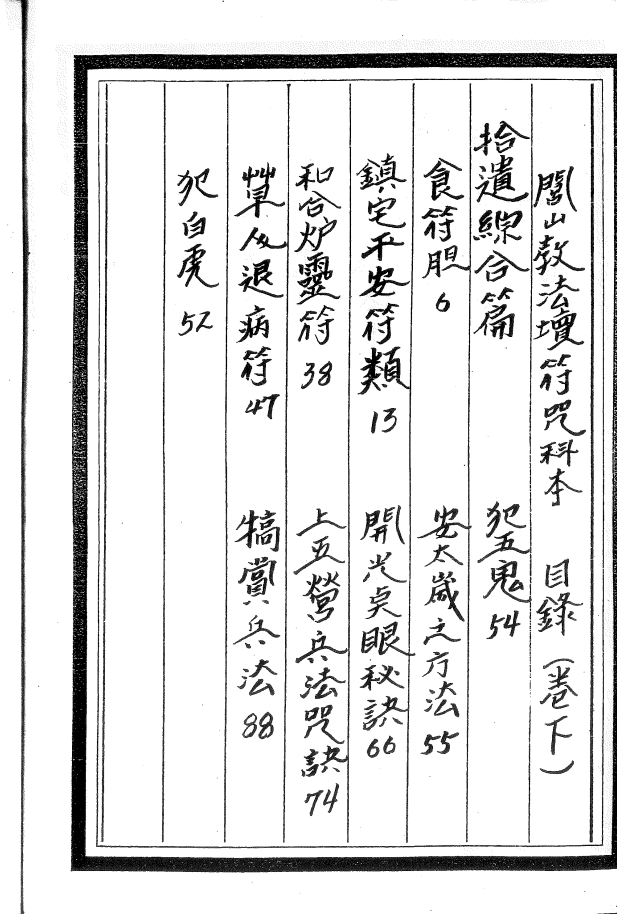 閭山教法壇符咒科本 目錄(卷下)
拾遺綜合篇
食符胆 6
鎮宅平安符類 13
和合炉靈符 38
草人退病符 47
犯白虎 52
犯五鬼 54
安太歲之方法 55
開光点眼秘訣 66
上五營兵法咒訣 74
犒賞兵法 88